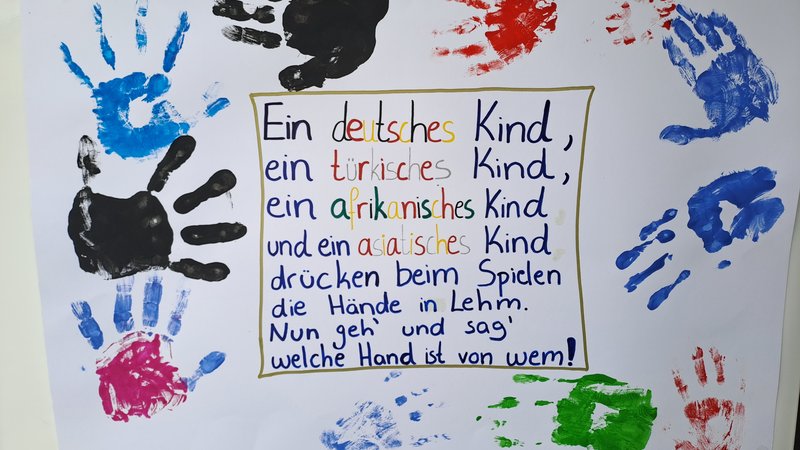 Ein deutsches Kind,
ein türkisches Kind,
ein afrikanisches Kind
und ein asiatisches Kind
drücken beim Spielen
die Hände in Lehm.
Nun geh' und sag'
welche Hand ist von wem!